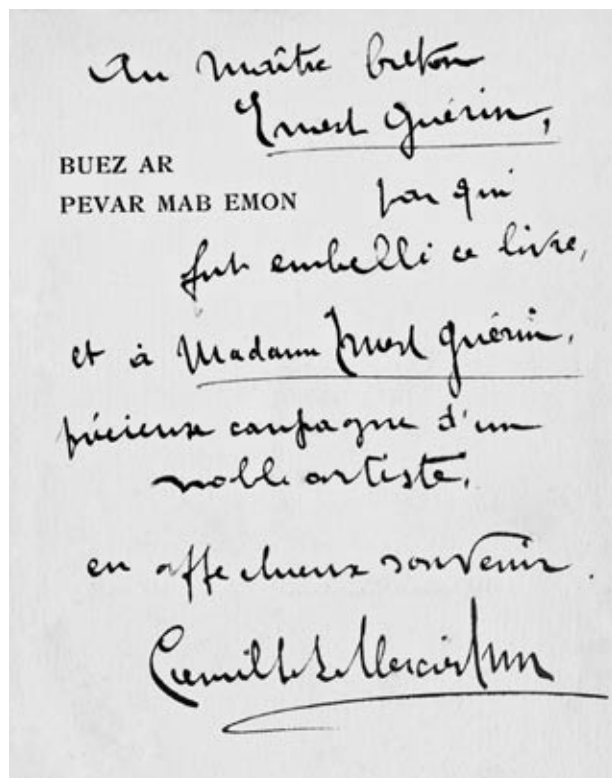 Au maître breton
Ernest Guérin,
BUEZ AR
PEVAR MAB EMON
par qui
fut embelli ce livre,
et à Madame Ernest Guérin,
précieuse compagne d'un
noble artiste,
en affectueux souvenir.
Camille Le Mercier d'Erm